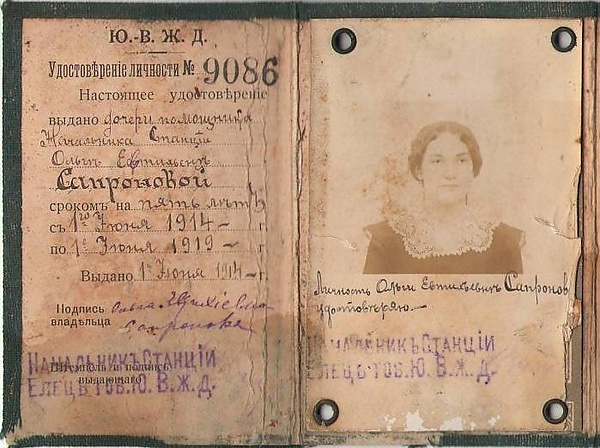 Ю.-В. Ж. Д.
Удостовѣреніе личности № 9086
Настоящее удостовѣреніе
выдано дочери помощника
Начальника Станціи
Ольгѣ
Сапроновой
срокомъ на пять лѣтъ
съ 1го Іюня 1914 г.
по 1е Іюня 1919 г.
Выдано 1 Іюня 1914 г.
Подпись Ольга
владѣльца Сапронова
Штемпель и подпись
выдающаго
НАЧАЛЬНИКЪ СТАНЦІИ
ЕЛЕЦЪ ТОВ. Ю. В. Ж. Д.
Личность Ольги Сапронов
удостовѣряю
НАЧАЛЬНИКЪ СТАНЦІИ
ЕЛЕЦЪ ТОВ. Ю. В. Ж. Д.